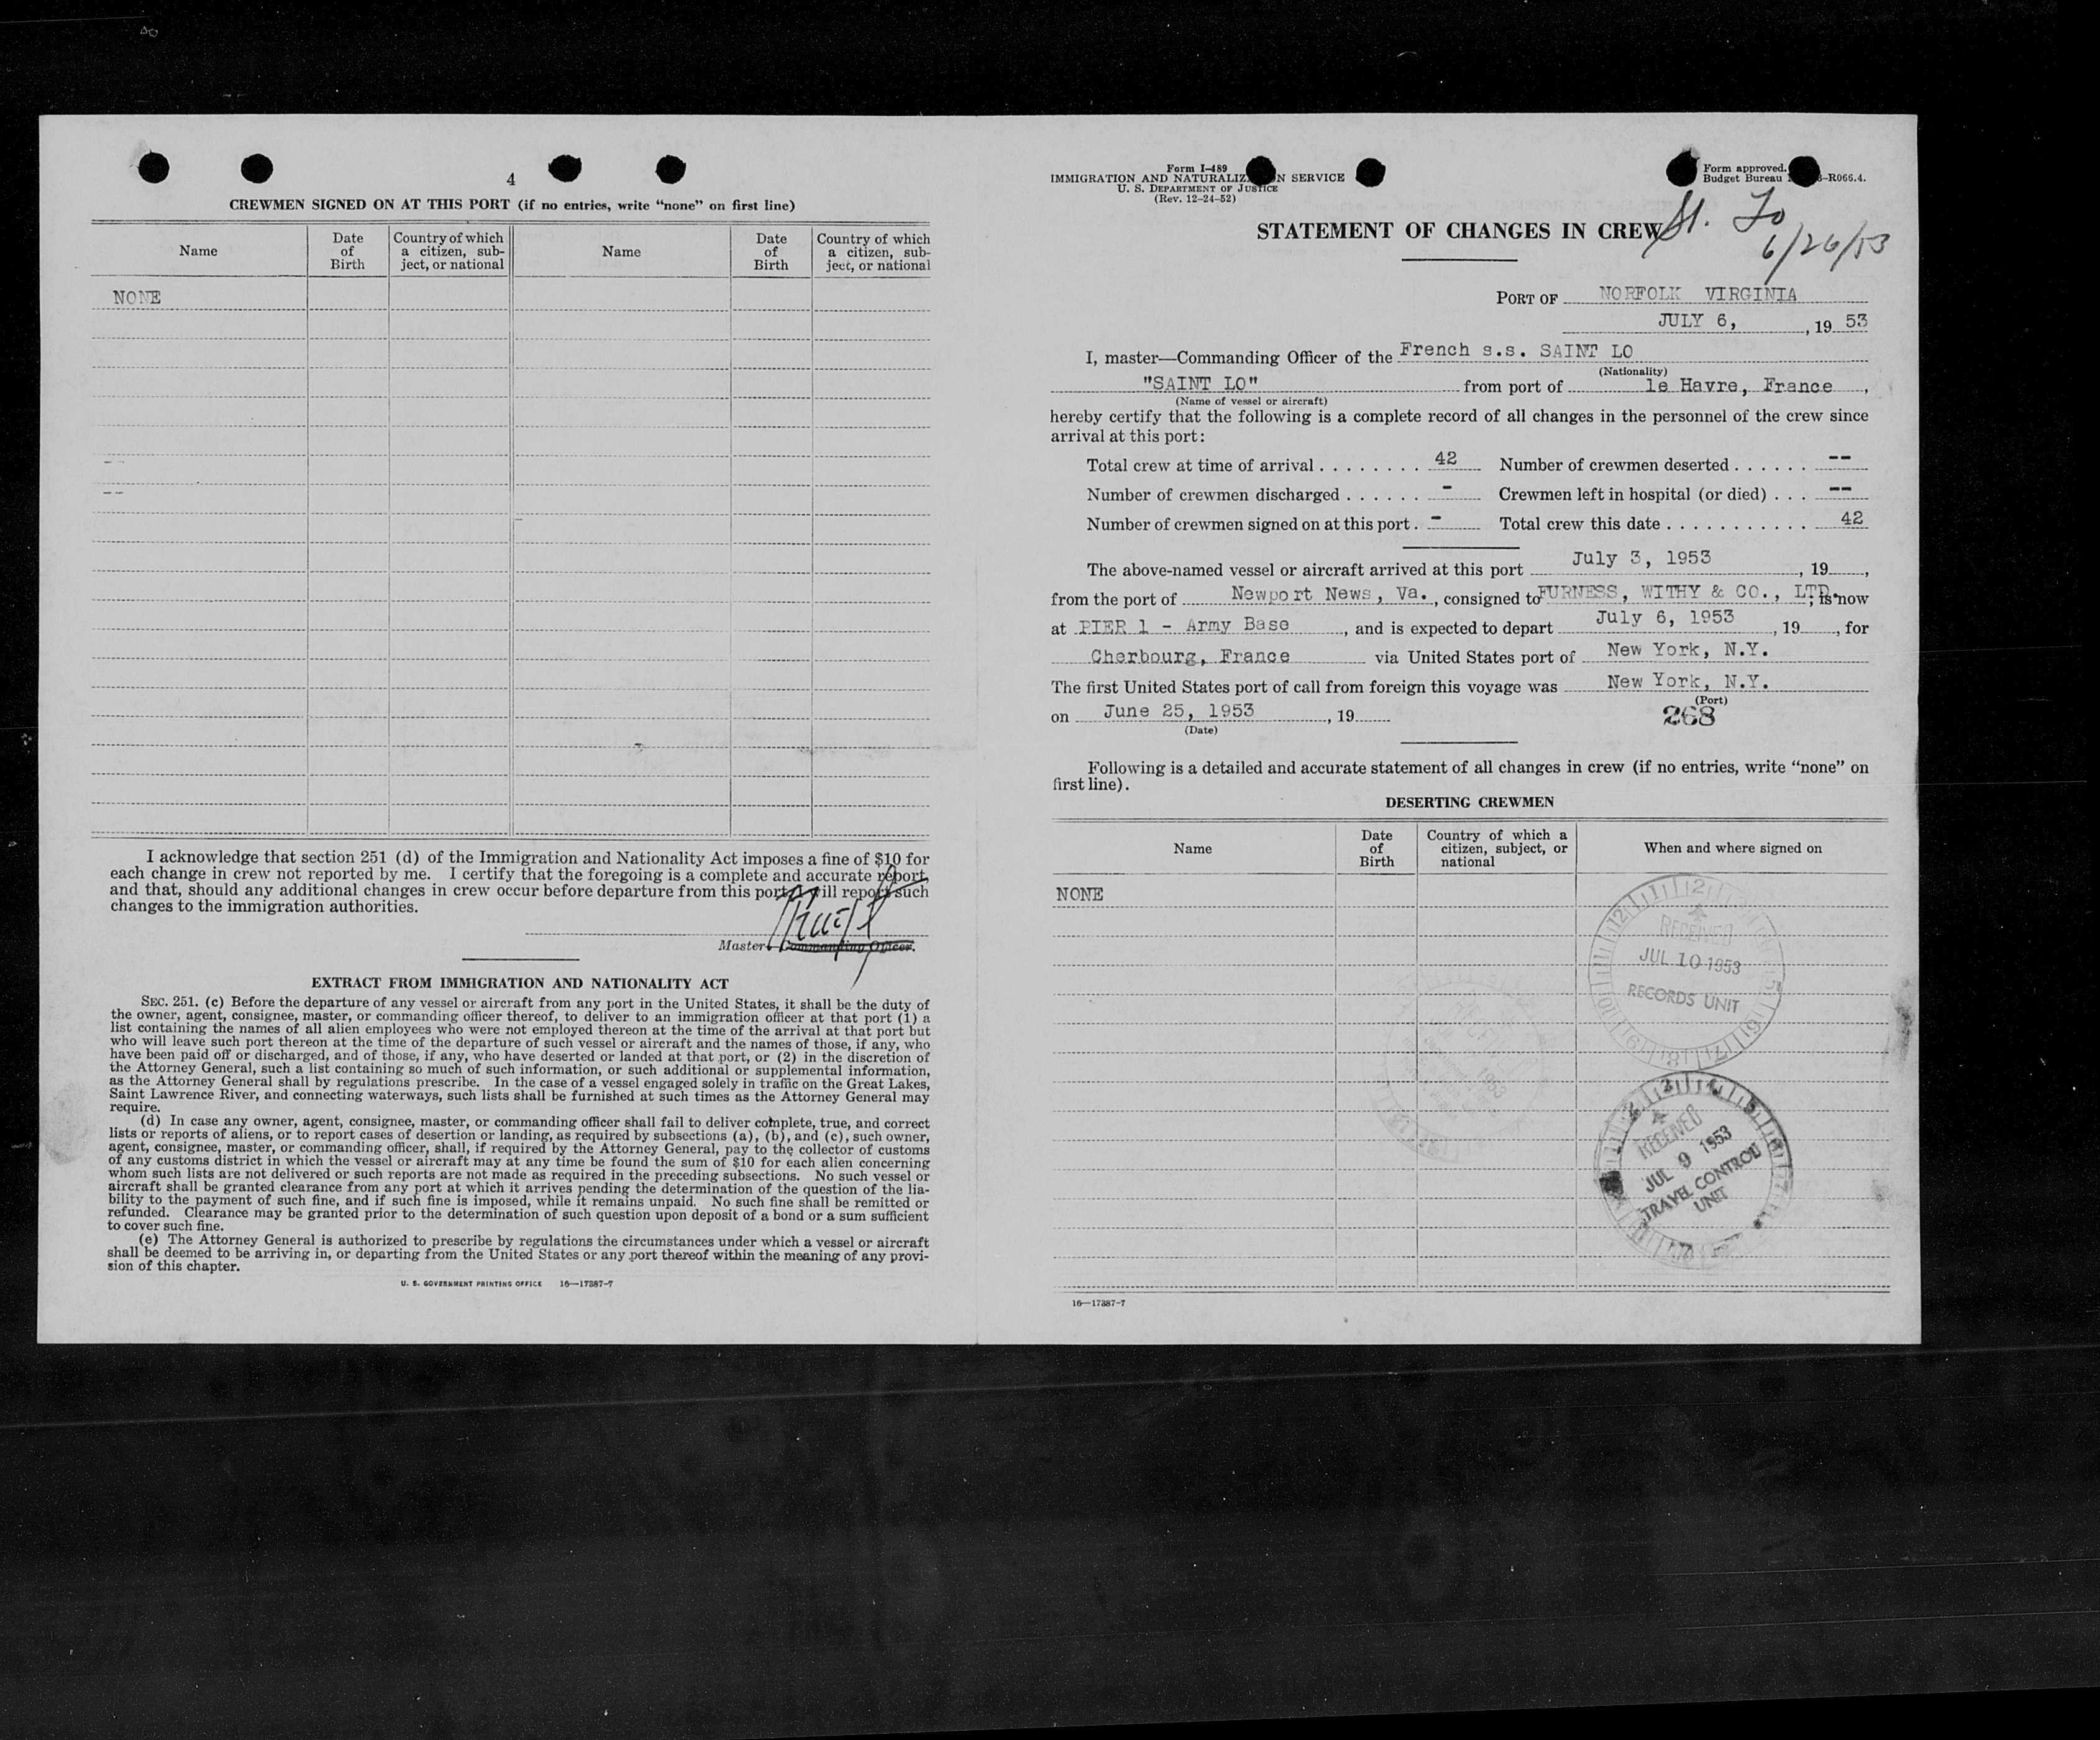 4
CREWMEN SIGNED ON AT THIS PORT (if no entries, write “none” on first line)
Name
Date of Birth
Country of which a citizen, sub-ject, or national
Name
Date of Birth
Country of which a citizen, sub-ject, or national
NONE
I acknowledge that section 251 (d) of the Immigration and Nationality Act imposes a fine of $10 for
each change in crew not reported by me. I certify that the foregoing is a complete and accurate report,
and that, should any additional changes in crew occur before departure from this port, I will report such
changes to the immigration authorities.
Master—Commanding Officer.
EXTRACT FROM IMMIGRATION AND NATIONALITY ACT
SEC. 251. (c) Before the departure of any vessel or aircraft from any port in the United States, it shall be the duty of
the owner, agent, consignee, master, or commanding officer thereof, to deliver to an immigration officer at that port (1) a
list containing the names of all alien employees who were not employed thereon at the time of the arrival at that port but
who will leave such port thereon at the time of the departure of such vessel or aircraft and the names of those, if any, who
have been paid off or discharged, and of those, if any, who have deserted or landed at that port, or (2) in the discretion of
the Attorney General, such a list containing so much of such information, or such additional or supplemental information,
as the Attorney General shall by regulations prescribe. In the case of a vessel engaged solely in traffic on the Great Lakes,
Saint Lawrence River, and connecting waterways, such lists shall be furnished at such times as the Attorney General may
require.
(d) In case any owner, agent, consignee, master, or commanding officer shall fail to deliver complete, true, and correct
lists or reports of aliens, or to report cases of desertion or landing, as required by subsections (a), (b), and (c), such owner,
agent, consignee, master, or commanding officer, shall, if required by the Attorney General, pay to the collector of customs
of any customs district in which the vessel or aircraft may at any time be found the sum of $10 for each alien concerning
whom such lists are not delivered or such reports are not made as required in the preceding subsections. No such vessel or
aircraft shall be granted clearance from any port at which it arrives pending the determination of the question of the lia-
bility to the payment of such fine, and if such fine is imposed, while it remains unpaid. No such fine shall be remitted or
refunded. Clearance may be granted prior to the determination of such question upon deposit of a bond or a sum sufficient
to cover such fine.
(e) The Attorney General is authorized to prescribe by regulations the circumstances under which a vessel or aircraft
shall be deemed to be arriving in, or departing from the United States or any port thereof within the meaning of any provi-
sion of this chapter.
U. S. GOVERNMENT PRINTING OFFICE 16—17387-7
Form I-489
IMMIGRATION AND NATURALIZ N SERVICE
U. S. DEPARTMENT OF JUSTICE
(Rev. 12-24-52)
Form approved.
Budget Bureau -R066.4.
STATEMENT OF CHANGES IN CREW
St. Lo
6/26/53
PORT OF NORFOLK VIRGINIA
JULY 6, , 19 53
I, master—Commanding Officer of the French s.s. SAINT LO
(Nationality)
"SAINT LO" from port of le Havre, France ,
(Name of vessel or aircraft)
hereby certify that the following is a complete record of all changes in the personnel of the crew since
arrival at this port:
Total crew at time of arrival . . . . . . . . 42 Number of crewmen deserted . . . . . . --
Number of crewmen discharged . . . . . . - Crewmen left in hospital (or died) . . . --
Number of crewmen signed on at this port . - Total crew this date . . . . . . . . . . . 42
The above-named vessel or aircraft arrived at this port July 3, 1953 , 19 ,
from the port of Newport News, Va. , consigned to FURNESS, WITHY & CO., LTD. ; is now
at PIER 1 - Army Base , and is expected to depart July 6, 1953 , 19 , for
Cherbourg, France via United States port of New York, N.Y.
The first United States port of call from foreign this voyage was New York, N.Y.
(Port)
on June 25, 1953 , 19
(Date)
268
Following is a detailed and accurate statement of all changes in crew (if no entries, write “none” on
first line).
DESERTING CREWMEN
Name
Date of Birth
Country of which a citizen, subject, or national
When and where signed on
NONE
RECEIVED
JUL 10 1953
RECORDS UNIT
RECEIVED
JUL 9 1953
TRAVEL CONTROL
UNIT
16—17387-7